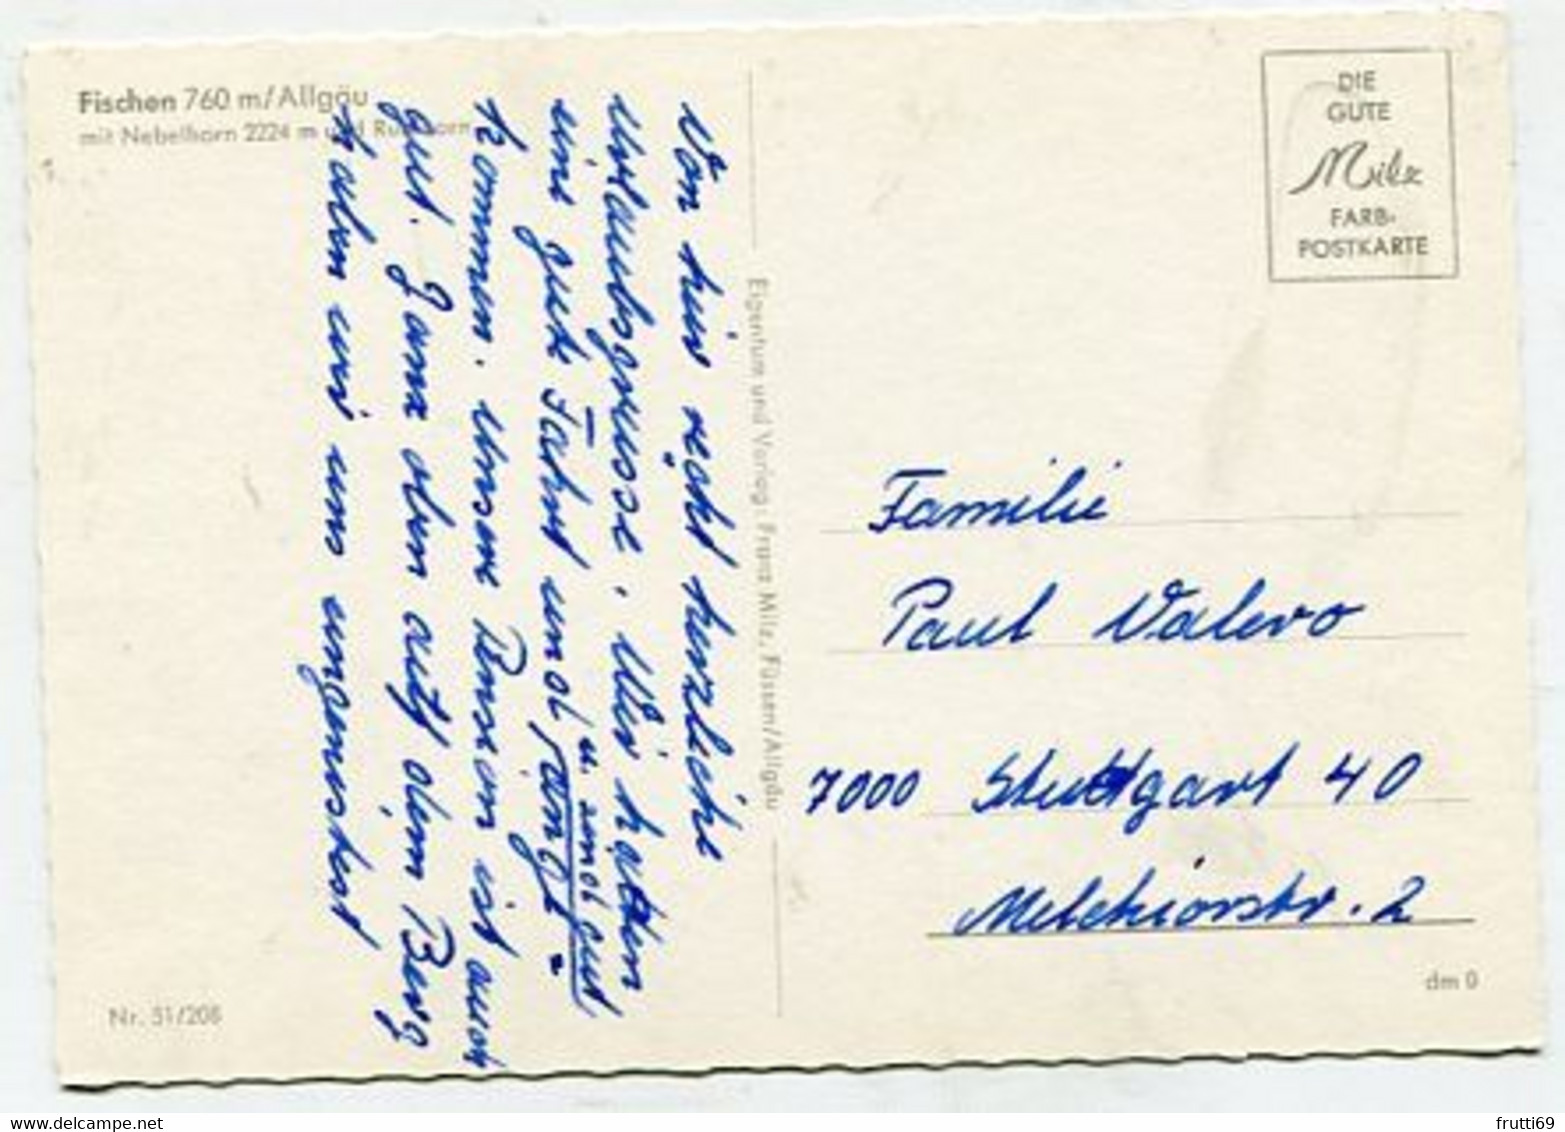 Fischen 760 m/Allgäu
mit Nebelhorn 2224 m und Rubihorn
Von hier recht herzliche
Urlaubsgrüsse. Wir hatten
eine gute Fahrt und sind gut
kommen. Unsere Pension ist auch
gut. Ganz oben auf dem Berg
haben wir uns
Nr. 51/208
Eigentum und Verlag: Franz Milz, Füssen/Allgäu
DIE
GUTE
Milz
FARB-
POSTKARTE
Familie
Paul Valero
7000 Stuttgart 40
Melchiorstr. 2
dm 0
www.delcampe.net
frutti69